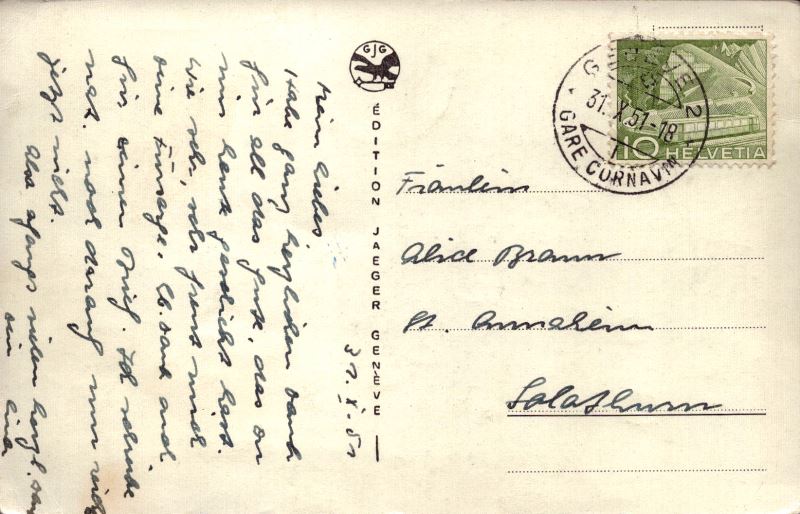 Mein liebes
Habe ganz herzlichen Dank
für all das Gute, das du
mir heute geschickt hast.
Wie sehr, sehr freut mich
deine Fürsorge. Dank auch
für deinen Brief. Ich schreibe
noch darauf nur
jetzt nicht.
Also vielen herzl. Dank
dein
Lina
31.X.51
GJG
ÉDITION JAEGER GENÈVE
GENÈVE 2
31.X.51-18
1
GARE CORNAVIN
10 HELVETIA
Fräulein
Alice Braun
St. Annaheim
Solothurn